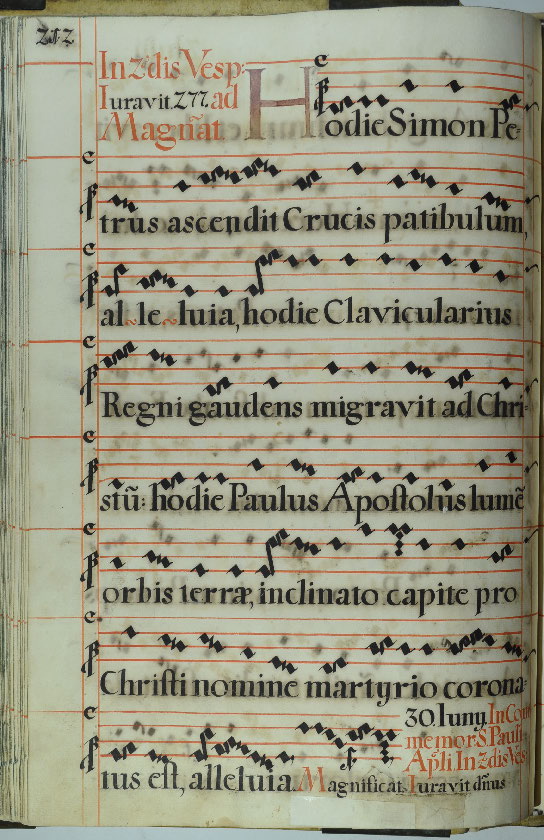 212
In 2dis Vesp:
Iuravit. 277. ad
Magñat
Hodie Simon Pe-
trus ascendit Crucis patibulum,
al~le~luia, hodie Clavicularius
Regni gaudens migravit ad Chri-
stũ: hodie Paulus Apostolus lumẽ
orbis terræ, inclinato capite pro
Christi nomine martyrio corona-
tus est, alleluia. Magnificat.
30. Iuny. In Com
memor S. Pauli
Apli In 2dis Ves
Iuravit dñus